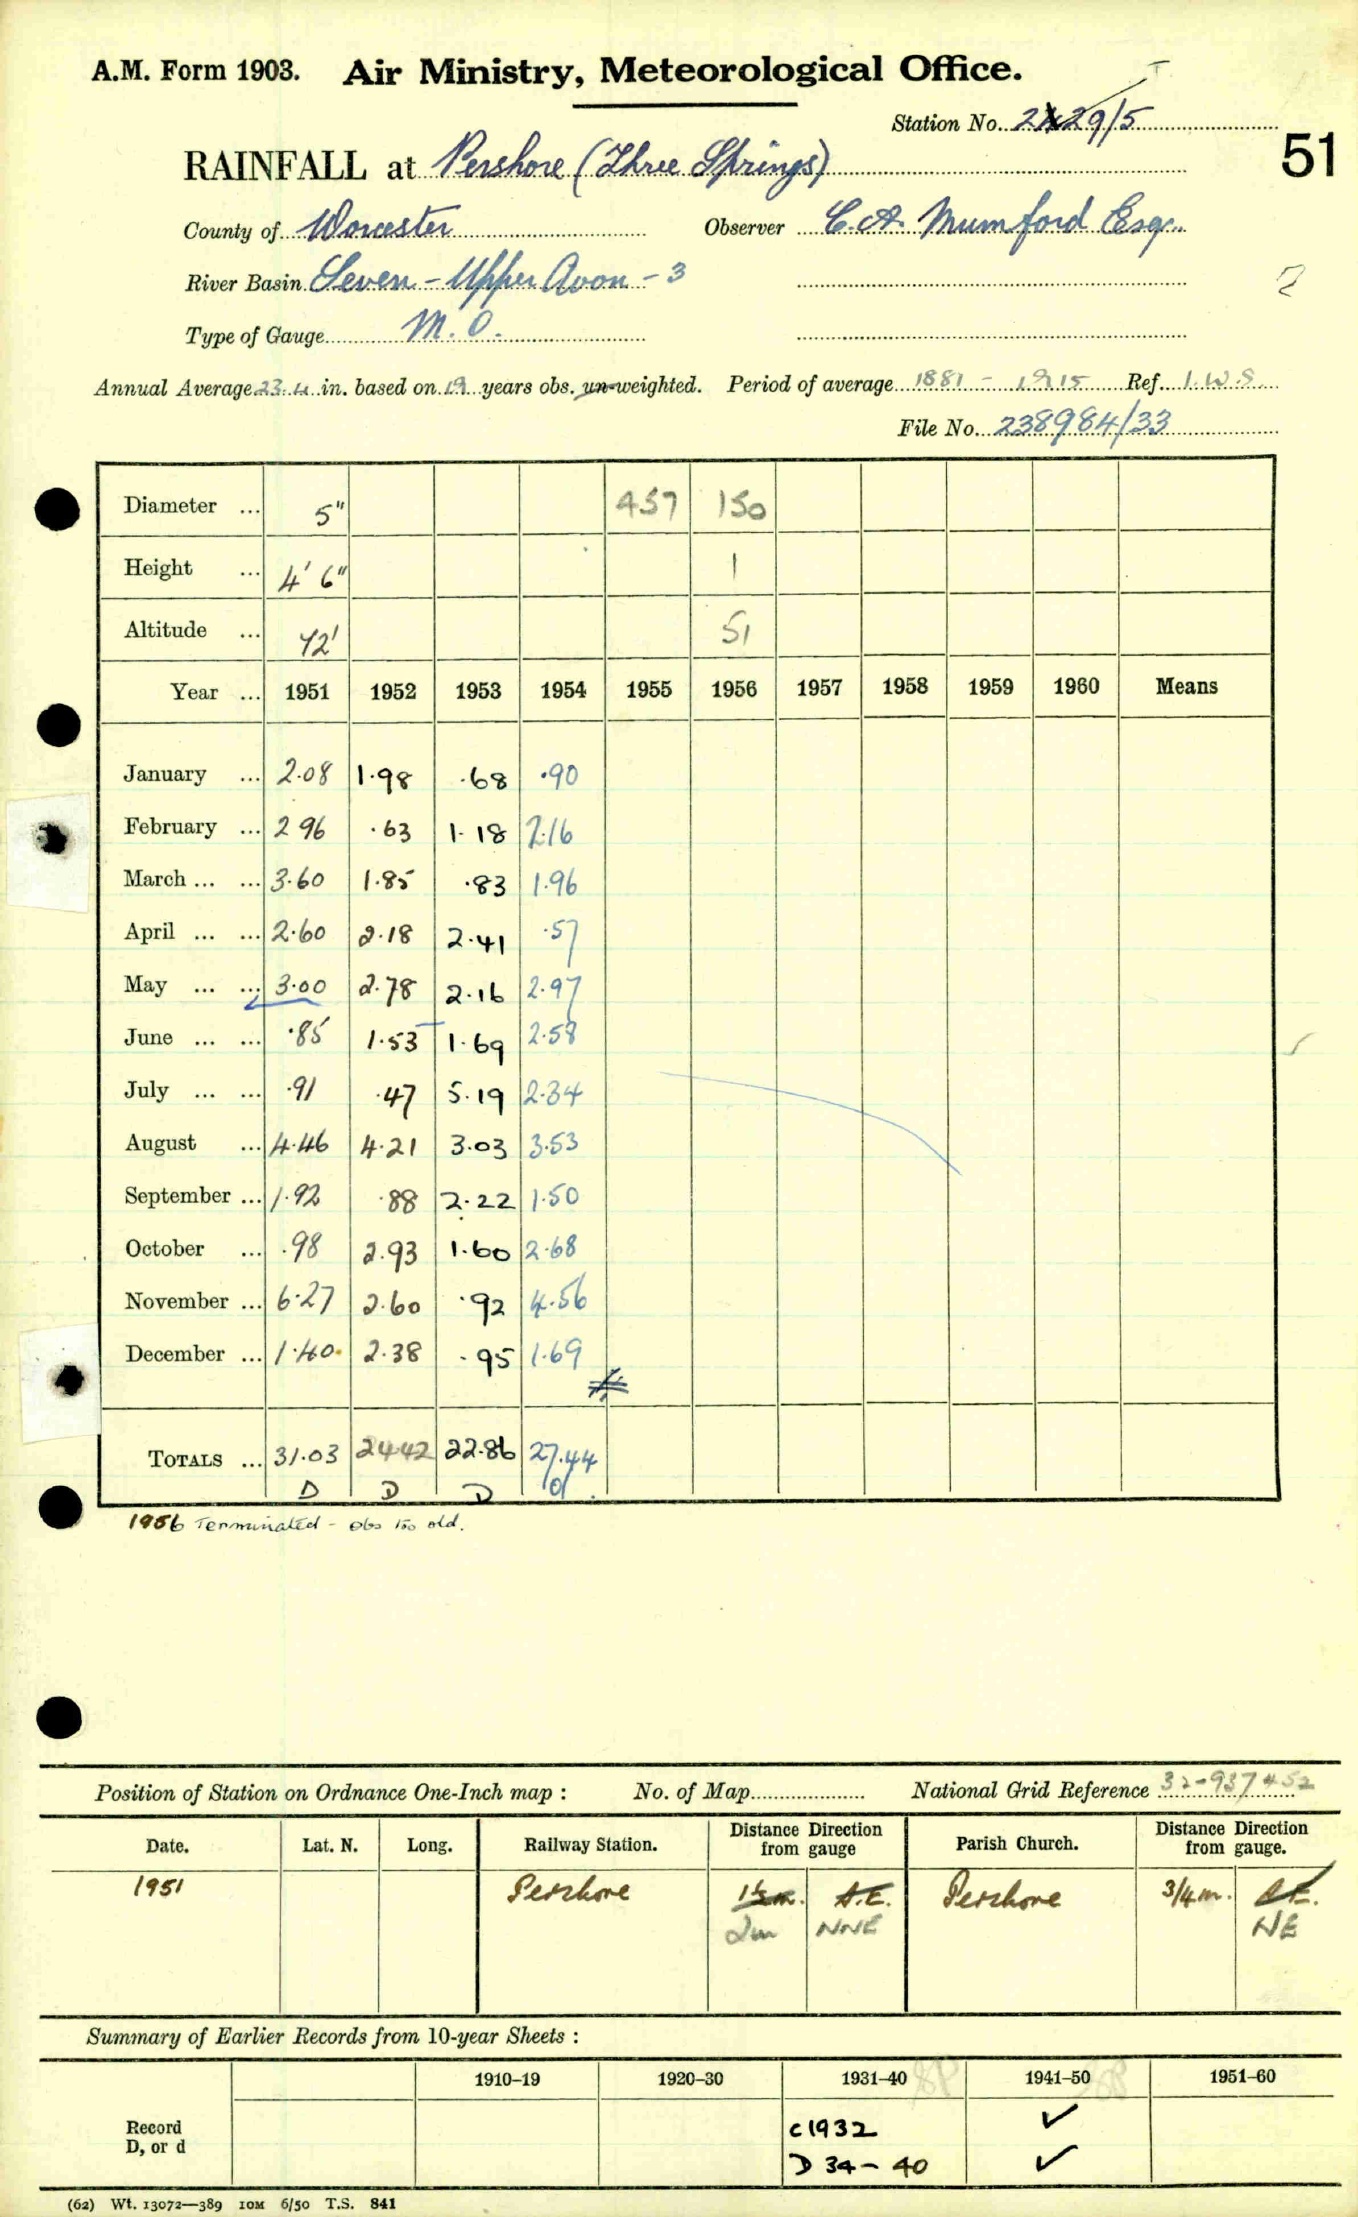 A.M. Form 1903. Air Ministry, Meteorological Office.
Station No. 2429/5
51
RAINFALL at Pershore (Three Springs)
County of Worcester Observer C.A. Mumford Esq.
River Basin Seven - Upper Avon - 3
Type of Gauge M.O.
Annual Average 23.4 in. based on 19 years obs. un-weighted. Period of average 1881 - 1915 Ref. I.W.S.
File No. 238984/33
Diameter ... 5" 457 150
Height ... 4' 6" 1
Altitude ... 42' 51
Year ... 1951 1952 1953 1954 1955 1956 1957 1958 1959 1960 Means
January ... 2.08 1.98 .68 .90
February ... 2 96 .63 1.18 2.16
March ... ... 3.60 1.85 .83 1.96
April ... ... 2.60 2.18 2.41 .57
May ... ... 3.00 2.78 2.16 2.97
June ... ... .85 1.53 1.69 2.58
July ... ... .91 .47 5.19 2.34
August ... 4.46 4.21 3.03 3.53
September ... 1.92 .88 2.22 1.50
October ... .98 2.93 1.60 2.68
November ... 6.27 2.60 .92 4.56
December ... 1.40 2.38 .95 1.69
TOTALS ... 31.03 2442 22.86 27.44
D D D
1956 Terminated - obs too old.
Position of Station on Ordnance One-Inch map : No. of Map National Grid Reference 32-937452
Date. Lat. N. Long. Railway Station. Distance from Direction gauge Parish Church. Distance from Direction gauge.
1951 Pershore 1½m. S.E. Pershore 3/4m. S.E.
2m NNE NE
Summary of Earlier Records from 10-year Sheets :
1910–19 1920–30 1931–40 1941–50 1951–60
Record c1932 ✓
D, or d D 34 - 40 ✓
(62) Wt. 13072—389 10M 6/50 T.S. 841